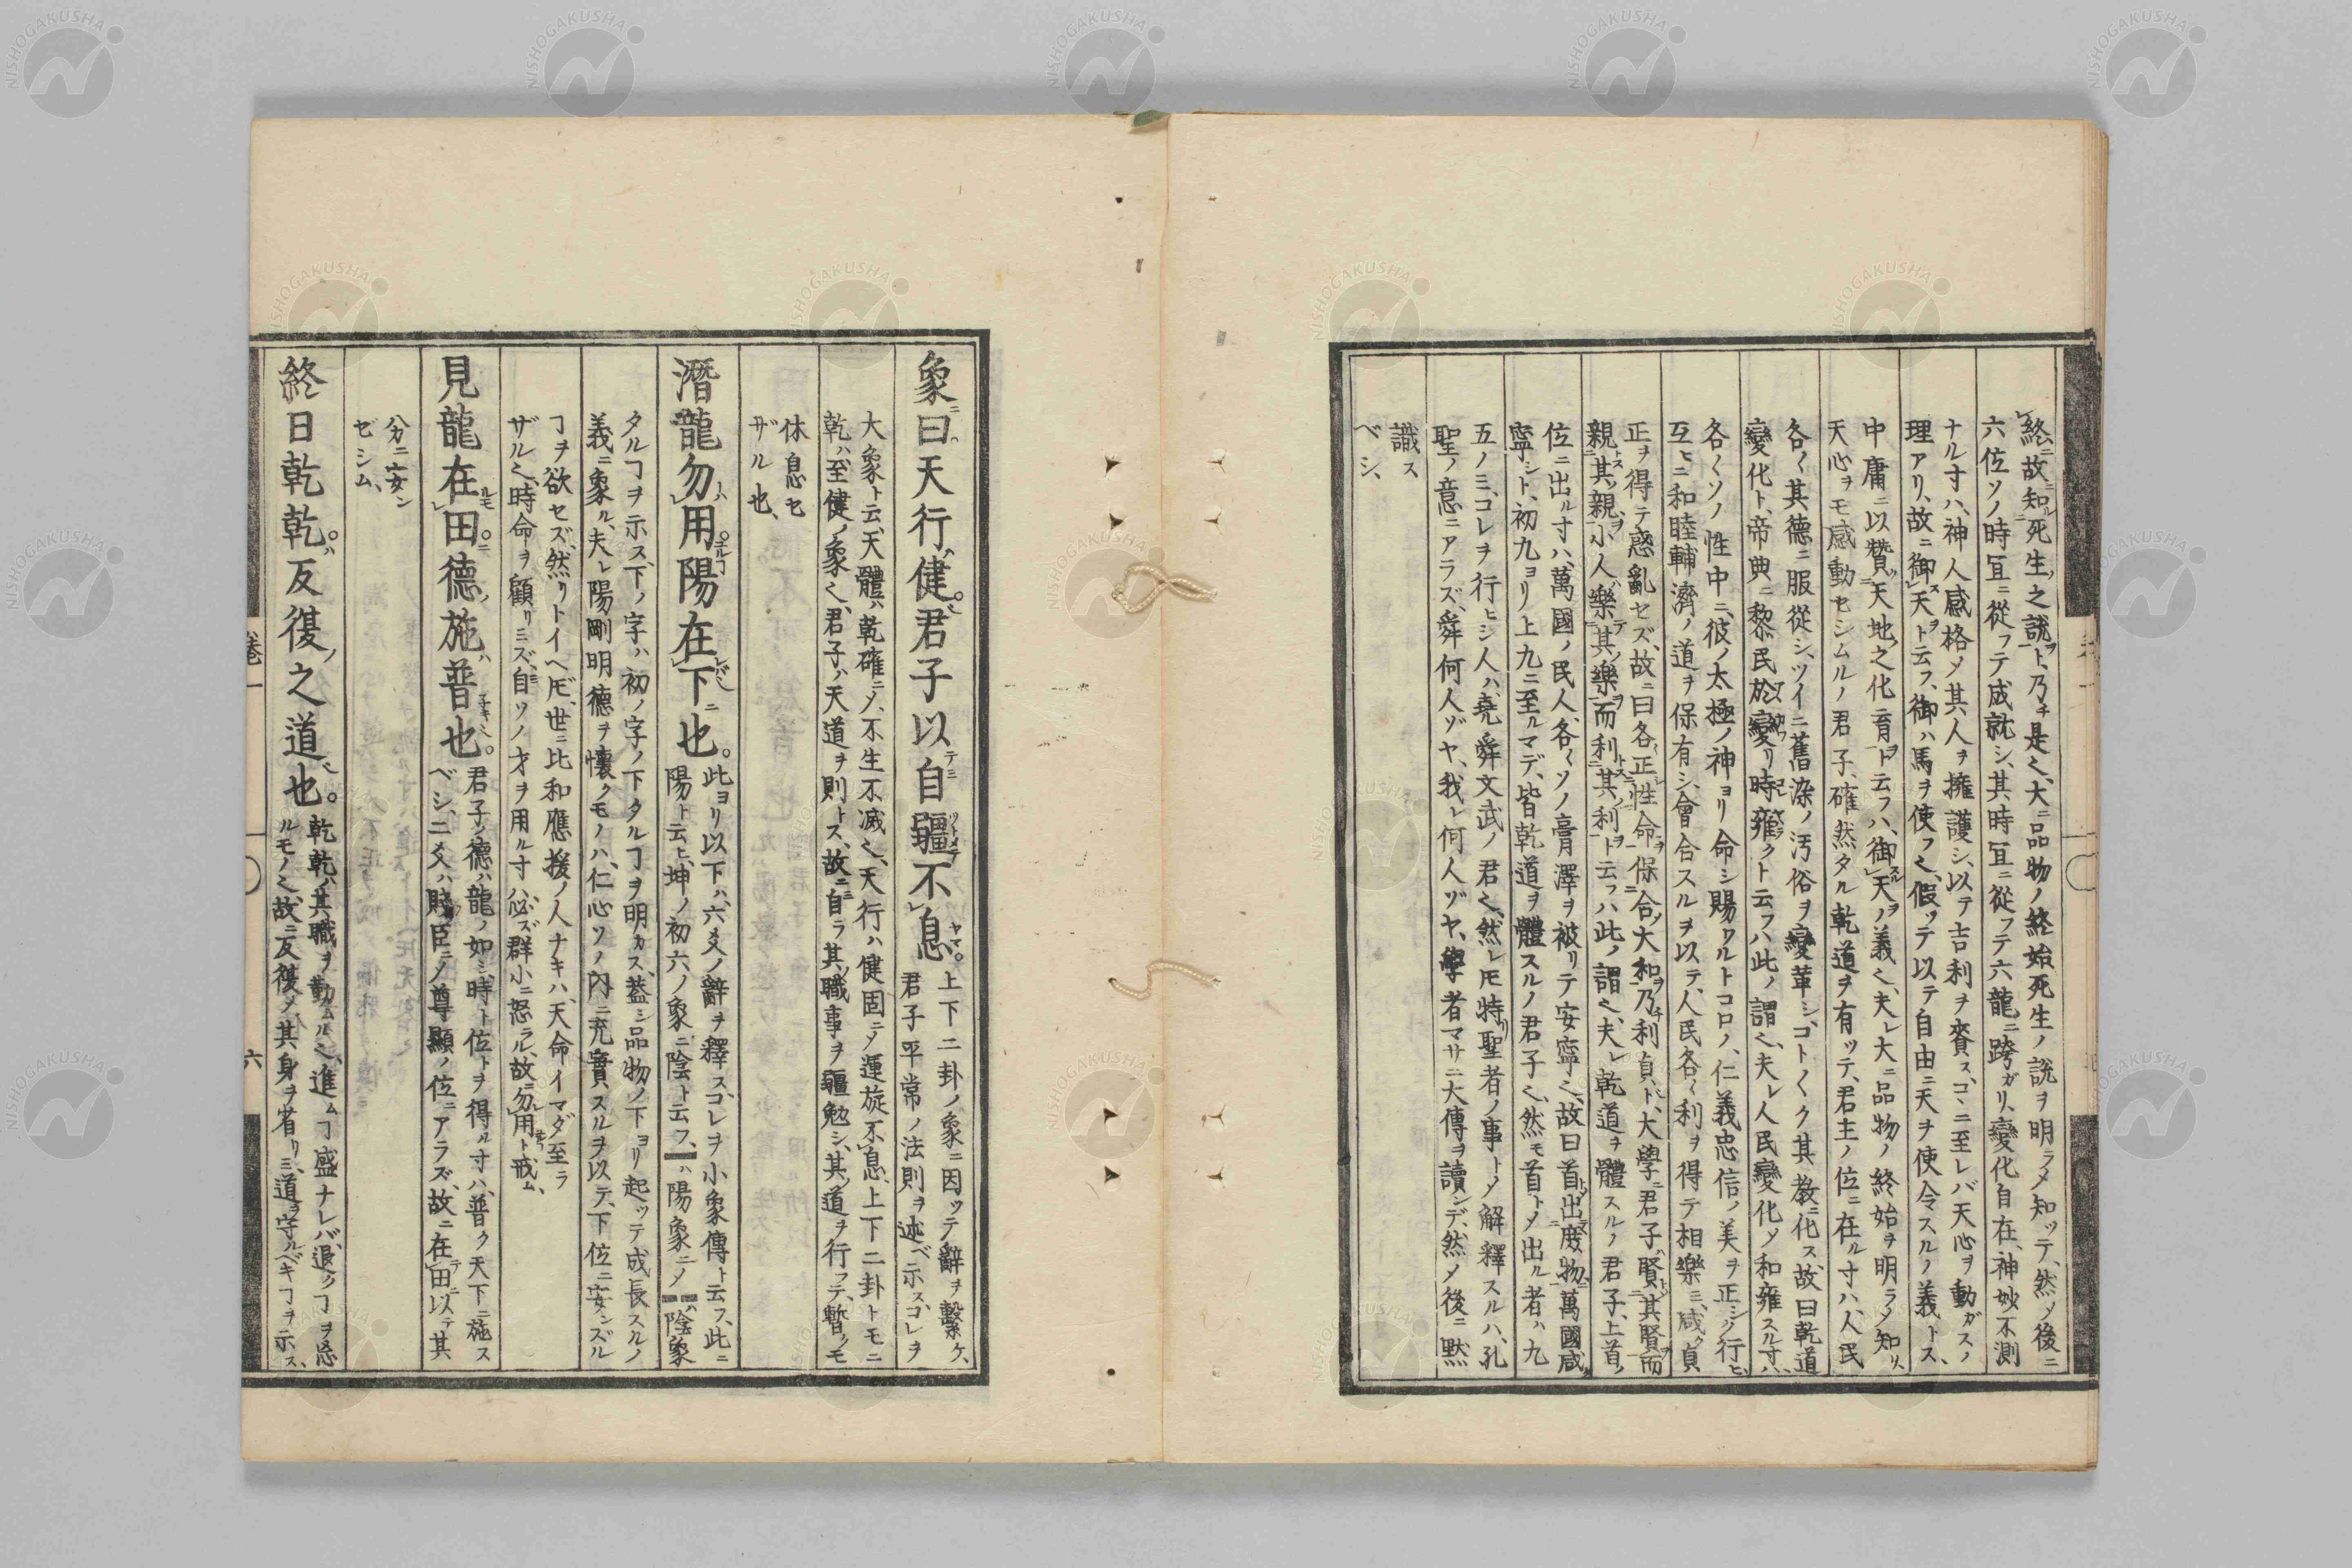 終ニ故知ル死生ノ之說ヲト、乃チ是〻、大ニ品物ノ終始死生ノ說ヲ明ラメ知ッテ、然ノ後ニ
六位ソノ時冝ニ從フテ成就シ、其時冝ニ從フテ六龍ニ跨ガリ、變化自在、神妙不測
ナル寸ハ、神人感格メ其人ヲ擁護シ、以テ吉利ヲ賚ス、コヽニ至レバ天心ヲ動ガスノ
理アリ、故ニ御天ヲト云フ、御ハ馬ヲ使フ〻、假ッテ以テ自由ニ天ヲ使令スルノ義トス、
中庸ニ以贊天地之化育ヲト云フハ、御天ノ義〻、夫レ大ニ品物ノ終始ヲ明ラメ知リ、
天心ヲモ感動セシムルノ君子、確然タル乾道ヲ有ッテ、君主ノ位ニ在ル寸ハ、人民
各〱其德ニ服從シ、ツイニ舊染ノ汚俗ヲ變革シ、コト〱ク其教ニ化ス、故曰乾道
變化ト、帝典ニ黎民於變リ時雍クト云フハ此ノ謂〻、夫レ人民變化メ和雍スル寸ハ、
各〱ソノ性中ニ、彼ノ太極ノ神ヨリ命シ賜フルトコロノ、仁義忠信ノ美ヲ正シク行ヒ、
互ヒニ和睦輔濟ノ道ヲ保有シ、會合スルヲ以テ、人民各〱利ヲ得テ相樂ミ、咸ク貞
正ヲ得テ惑亂セズ、故ニ曰各正性命保合大和乃チ利貞ト、大學ニ君子賢其賢而
親其親、小人樂其樂而利其利ト云フハ此ノ謂〻、夫レ乾道ヲ體スルノ君子、上首ノ
位ニ出ル寸ハ、萬國ノ民人、各〱ソノ膏澤ヲ被リテ安寧〻、故曰首出庶物萬國咸
寧シト、初九ヨリ上九ニ至ルマデ、皆乾道ヲ體スルノ君子〻、然モ首トメ出ル者ハ九
五ノミ、コレヲ行ヒシ人ハ、堯舜文武ノ君〻、然レ𪜈特リ聖者ノ事トノ解釋スルハ、孔
聖ノ意ニアラズ、舜何人ゾヤ、我レ何人ゾヤ、學者マサニ大傳ヲ讀ンデ、然メ後ニ默
識ス
ベシ、
象ニ曰ハク天行ハ健ナリ。君子以テ自疆不息。上下二卦ノ象ニ因ッテ辭ヲ繫ケ、
君子平常ノ法則ヲ述ベ示ス、コレヲ
大象ト云、天體ハ乾確ニノ、不生不滅〻、天行ハ健固ニメ運旋不息、上下二卦トモニ
乾ハ、至健ノ象〻、君子ハ天道ヲ則トス、故ニ自ラ其職事ヲ疆勉シ、其道ヲ行フテ、暫クモ
休息セ
ザル也、
潛龍勿用陽在下ニ也。此ヨリ以下ハ、六爻ノ辭ヲ釋ス、コレヲ小象傳ト云フ、此ニ
陽ト云ヒ、坤ノ初六ノ象ニ、陰ト云フ、⚊ハ陽象ニノ⚋ハ陰象
タルヿヲ示ス、下ノ字ハ、初ノ字ノ下タルヿヲ明カス、蓋シ品物ノ下ヨリ起ッテ成長スルノ
義ニ象ル、夫レ陽剛明德ヲ懷クモノハ、仁心ソノ内ニ充實スルヲ以テ、下位ニ安ンズル
ヿヲ欲セズ、然リトイヘ𪜈、世ニ比和應援ノ人ナキハ、天命イマダ至ラ
ザル〻、時命ヲ顧リミズ、自ソノ才ヲ用ル寸ハ、必ズ群小ニ怒ラル、故ニ勿用ト戒ム、
見龍在田德ノ施ハ普也。君子ノ德ハ、龍ノ如シ、時ト位トヲ得ル寸ハ、普ク天下ニ施ス
ベシ、二爻ハ臣ニノ尊顯ノ位ニアラズ、故ニ在田以テ其
分ニ安ン
ゼシム、
終日乾乾。反復ノ之道也。乾乾ハ其職ヲ勤ムル〻、進ムヿ盛ナレバ、退クヿヲ忘
ルモノ〻、故ニ反復メ其身ヲ省リミ、道ヲ守ルベキヿヲ示ス、
卷一
六